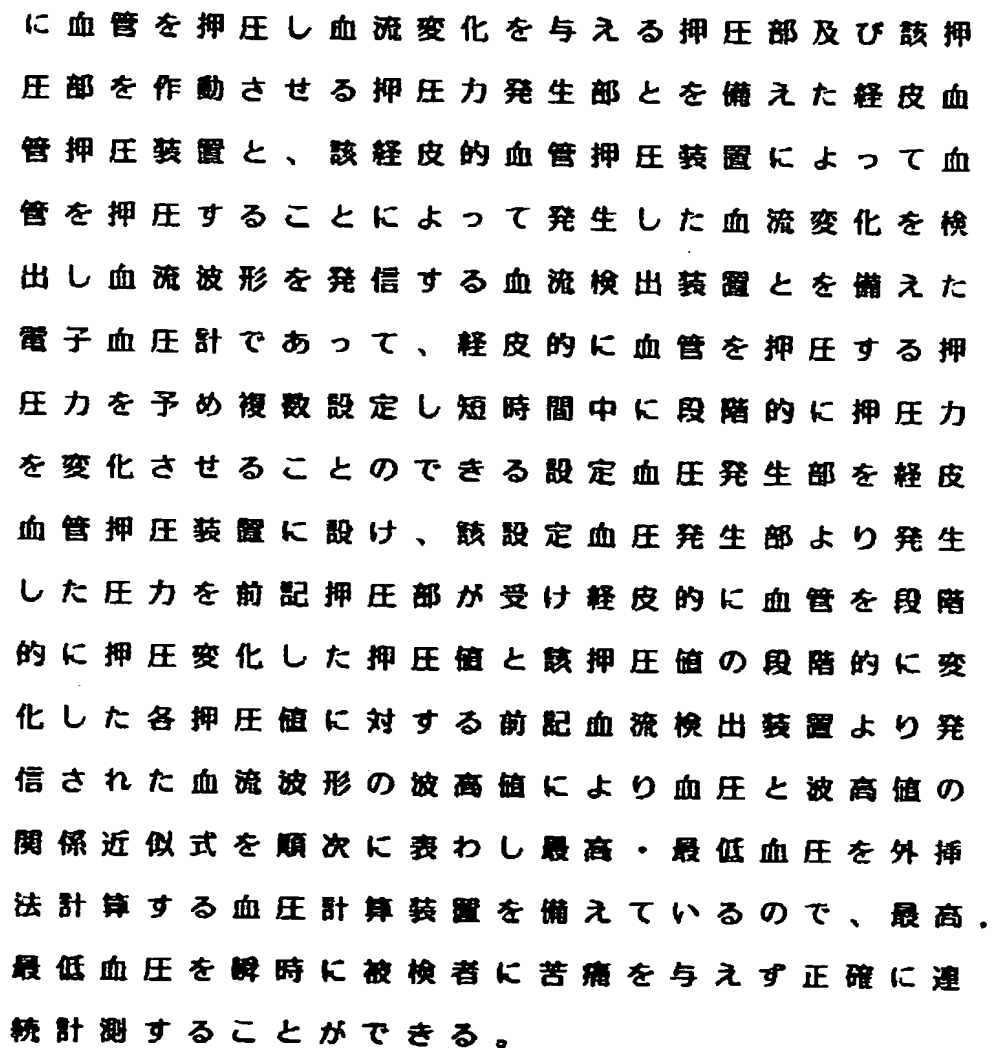 に血管を押圧し血流変化を与える押圧部及び該押
圧部を作動させる押圧力発生部とを備えた経皮血
管押圧装置と、該経皮的血管押圧装置によって血
管を押圧することによって発生した血流変化を検
出し血流波形を発信する血流検出装置とを備えた
電子血圧計であって、経皮的に血管を押圧する押
圧力を予め複数設定し短時間中に段階的に押圧力
を変化させることのできる設定血圧発生部を経皮
血管押圧装置に設け、該設定血圧発生部より発生
した圧力を前記押圧部が受け経皮的に血管を段階
的に押圧変化した押圧値と該押圧値の段階的に変
化した各押圧値に対する前記血流検出装置より発
信された血流波形の波高値により血圧と波高値の
関係近似式を順次に表わし最高・最低血圧を外挿
法計算する血圧計算装置を備えているので、最高.
最低血圧を瞬時に被検者に苦痛を与えず正確に連
続計測することができる。